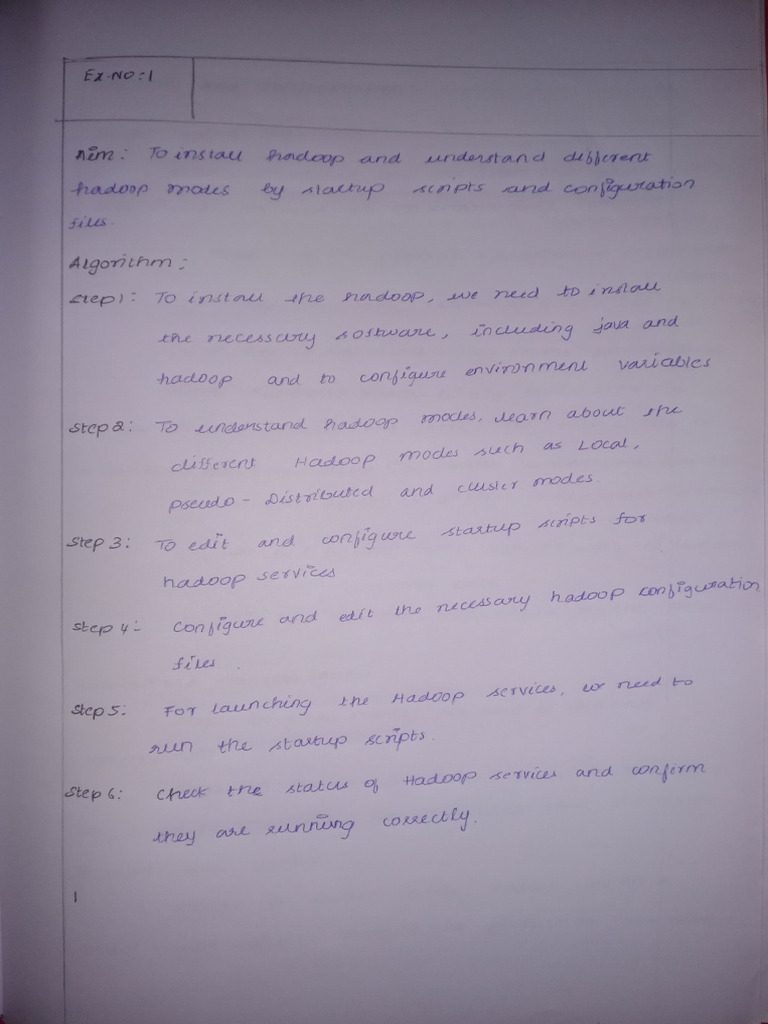 Ex.NO:1
Aim: To install hadoop and understand different
hadoop modes by startup scripts and configuration
files.
Algorithm:
Step1: To install the hadoop, we need to install
the necessary software, including java and
hadoop and to configure environment variables
Step 2: To understand hadoop modes, learn about the
different Hadoop modes such as Local,
pseudo-Distributed and cluster modes.
Step 3: To edit and configure startup scripts for
hadoop services
Step 4:- Configure and edit the necessary hadoop configuration
files.
Step 5: For launching the Hadoop services, we need to
run the startup scripts.
Step 6: Check the status of Hadoop services and confirm
they are running correctly.
1